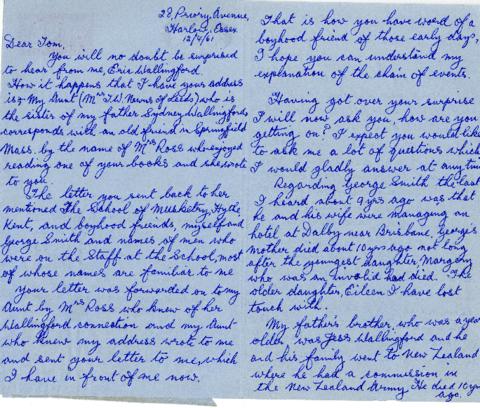 28, Priory Avenue,
Harlow, Essex
12/4/61
Dear Tom,
You will no doubt be surprised
to hear from me, Eric Wallingford.
How it happens that I have your address
is:- My Aunt (Mrs J.W. Nevins of Leeds) who is
the sister of my father Sydney Wallingford,
corresponds with an old friend in Springfield
Mass. by the name of Mrs Ross who enjoyed
reading one of your books and she wrote
to you.
The letter you sent back to her
mentioned The School of Musketry, Hythe,
Kent, and boyhood friends, myself and
George Smith and names of men who
were on the Staff at the School, most
of whose names are familiar to me
Your letter was forwarded on to my
Aunt by Mrs Ross who knew of her
Wallingford connection and my Aunt
who knew my address wrote to me
and sent your letter to me, which
I have in front of me now.
That is how you have word of a
boyhood friend of those early days,
I hope you can understand my
explanation of the chain of events.
Having got over your surprise
I will now ask you, how are you
getting on? I expect you would like
to ask me a lot of questions which
I would gladly answer at any time
Regarding George Smith the last
I heard about 9 yrs ago was that
he and his wife were managing an
hotel at Dalby near Brisbane, Georges
Mother died about 10 yrs ago not long
after the youngest daughter, Margery
who was an Invalid had died. The
older daughter, Eileen I have lost
touch with.
My father's brother, who was a year
older was Jess Wallingford and he
and his family went to New Zealand
where he had a commission in
the New Zealand Army. He died 10 yrs
ago.